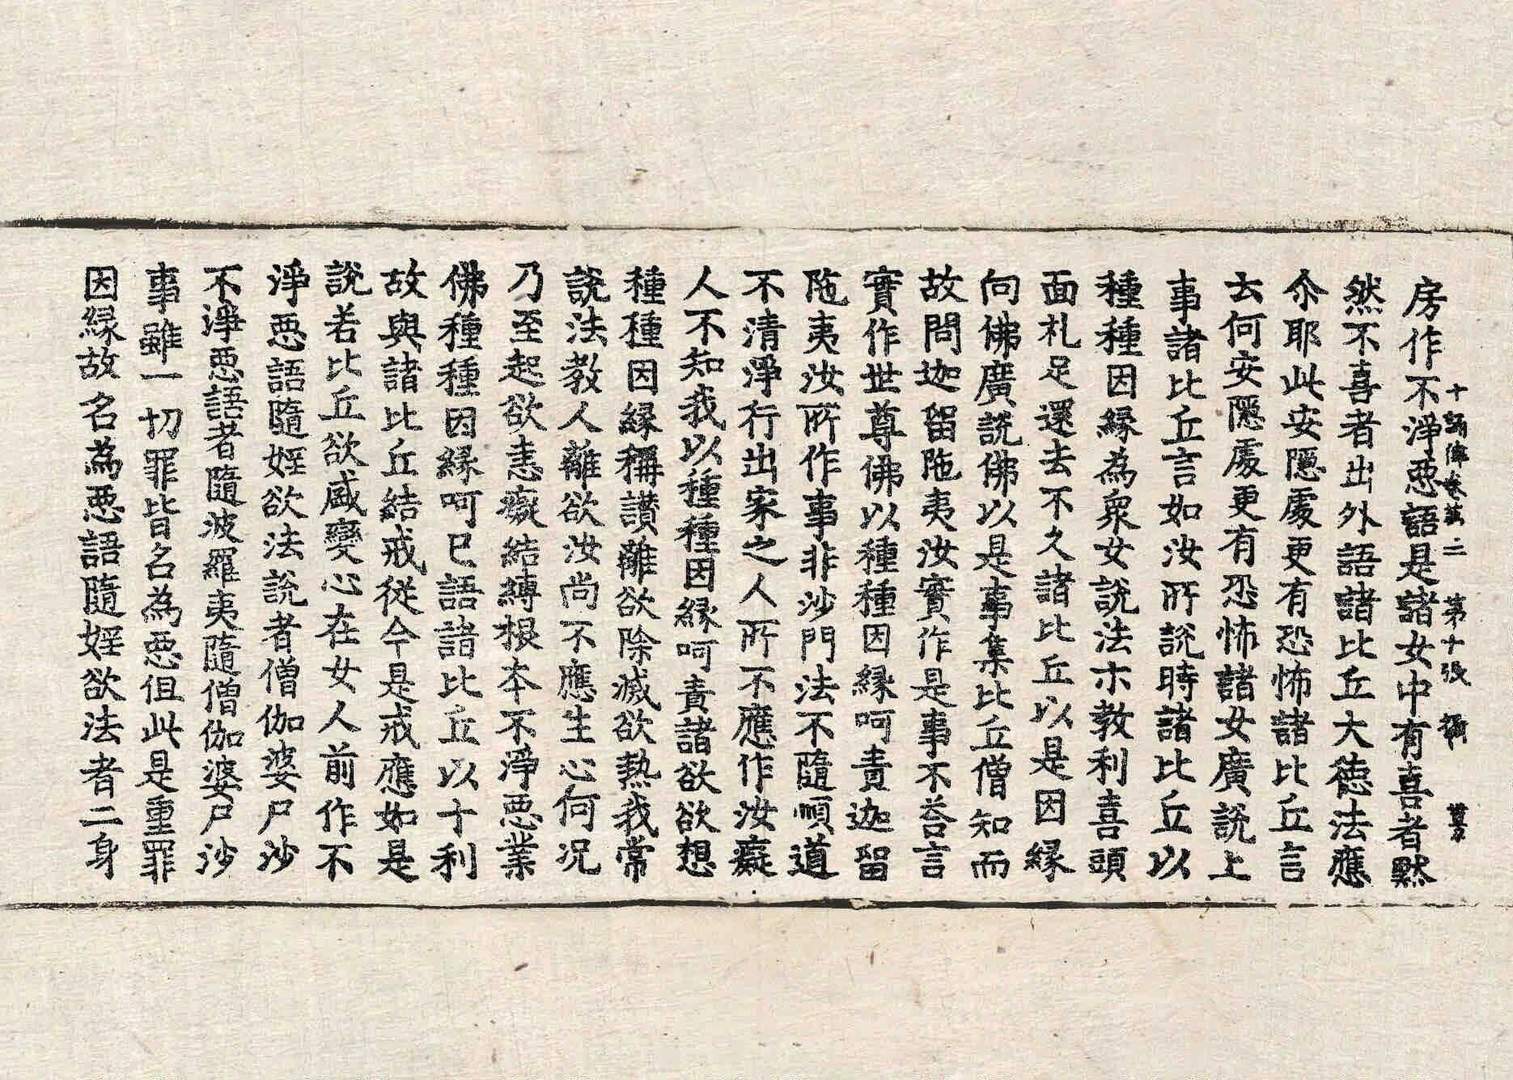 十誦律卷第二 第十張 攝
房作不淨惡語是諸女中有喜者默
然不喜者出外語諸比丘大德法應
尒耶此安隱處更有恐怖諸比丘言
去何安隱處更有恐怖諸女廣說上
事諸比丘言如汝所說時諸比丘以
種種因緣為衆女說法示教利喜頭
面札足還去不久諸比丘以是因緣
向佛廣說佛以是事集比丘僧知而
故問迦留陁夷汝實作是事不荅言
實作世尊佛以種種因緣呵責迦留
陁夷汝所作事非沙門法不隨順道
不清淨行出家之人所不應作汝癡
人不知我以種種因緣呵責諸欲欲想
種種因緣稱讃離欲除滅欲熱我常
說法教人離欲汝尚不應生心何況
乃至起欲恚癡結縛根本不淨惡業
佛種種因緣呵已語諸比丘以十利
故與諸比丘結戒從今是戒應如是
說若比丘欲盛變心在女人前作不
淨惡語隨婬欲法說者僧伽婆尸沙
不淨惡語者隨波羅夷隨僧伽婆尸沙
事雖一切罪皆名為惡但此是重罪
因緣故名為惡語隨婬欲法者二身